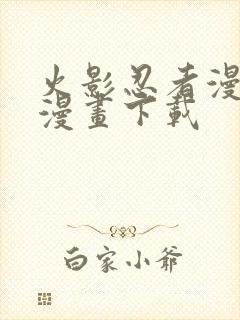 火影忍者漫
漫畫下載
白家小爺